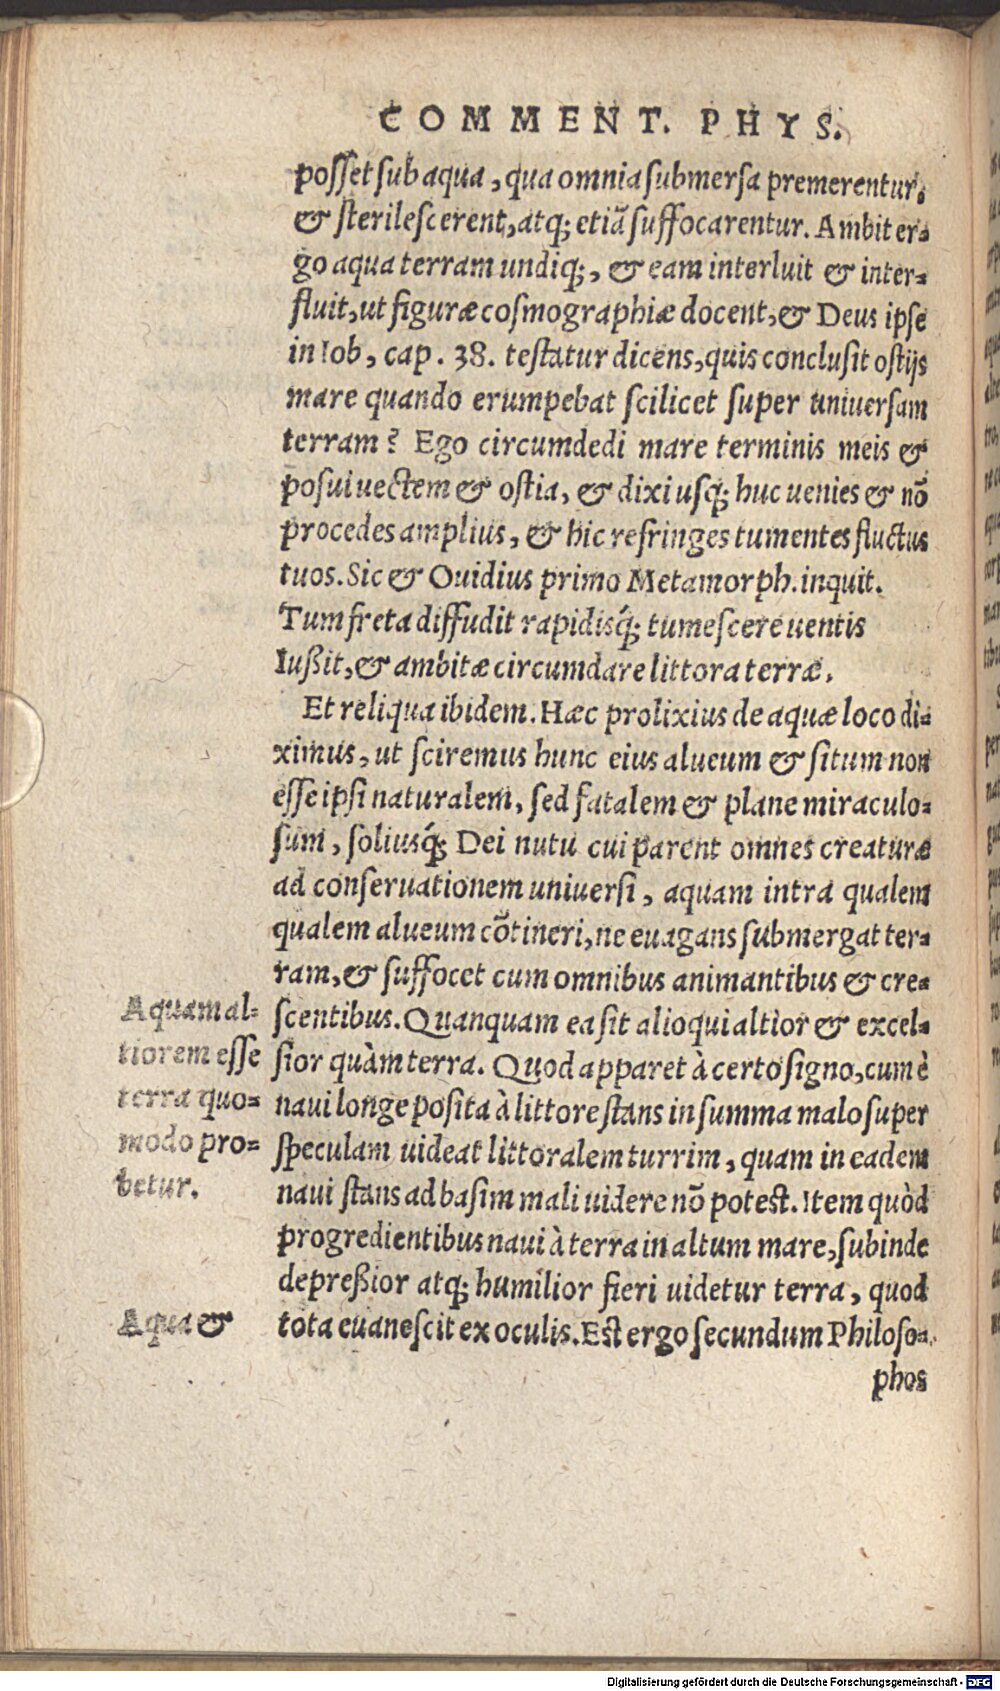 COMMENT. PHYS.
posset sub aqua, qua omnia submersa premerentur,
& sterilescerent, atq; etiã suffocarentur. Ambit er-
go aqua terram undiq;, & eam interluit & inter-
fluit, ut figuræ cosmographiæ docent, & Deus ipse
in Iob, cap. 38. testatur dicens, quis conclusit ostijs
mare quando erumpebat scilicet super uniuersam
terram? Ego circumdedi mare terminis meis &
posui uectem & ostia, & dixi usq; huc uenies & nõ
procedes amplius, & hic refringes tumentes fluctus
tuos. Sic & Ouidius primo Metamorph. inquit.
Tum freta diffudit rapidisq́; tumescere uentis
Iußit, & ambitæ circumdare littora terræ.
Et reliqua ibidem. Hæc prolixius de aquæ loco di-
ximus, ut sciremus hunc eius alueum & situm non
esse ipsi naturalem, sed fatalem & plane miraculo-
sum, soliusq́; Dei nutu cui parent omnes creaturæ
ad conseruationem uniuersi, aquam intra qualem
qualem alueum cõtineri, ne euagans submergat ter-
ram, & suffocet cum omnibus animantibus & cre-
scentibus. Quanquam ea sit alioqui altior & excel-
sior quàm terra. Quod apparet à certo signo, cum è
naui longe posita à littore stans in summa malo super
speculam uideat littoralem turrim, quam in eadem
naui stans ad basim mali uidere nõ potest. Item quòd
progredientibus naui à terra in altum mare, subinde
depreßior atq; humilior fieri uidetur terra, quod
tota euanescit ex oculis. Est ergo secundum Philoso-
phos
Aquam al-
tiorem esse
terra quo-
modo pro-
betur.
Aqua &
Digitalisierung gefördert durch die Deutsche Forschungsgemeinschaft - DFG